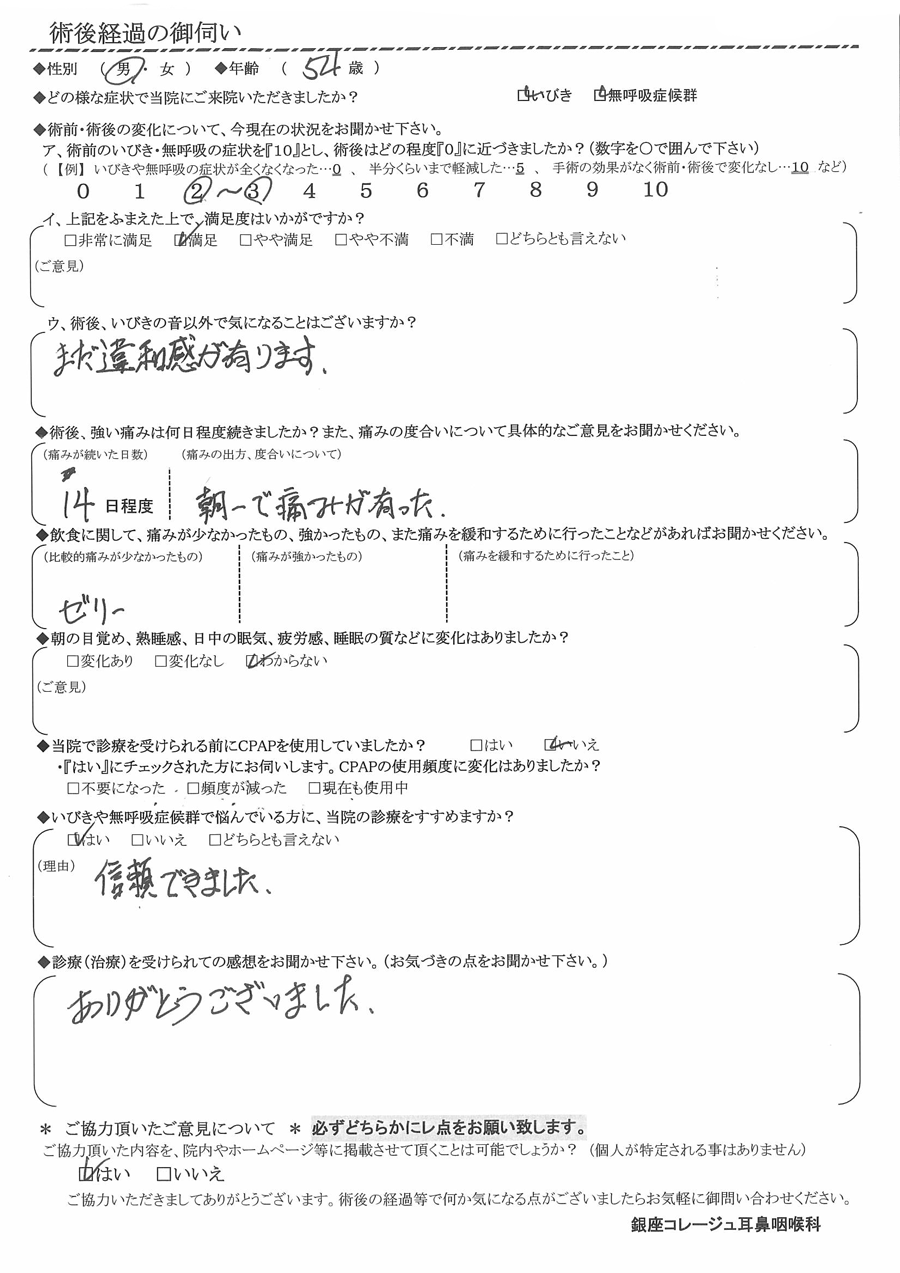 術後経過の御伺い
◆性別 （ 男 ・ 女 ） ◆年齢 （ 54 歳 ）
◆どの様な症状で当院にご来院いただきましたか？ ☑いびき ☑無呼吸症候群
◆術前・術後の変化について、今現在の状況をお聞かせ下さい。
ア、術前のいびき・無呼吸の症状を『10』とし、術後はどの程度『0』に近づきましたか？（数字を○で囲んで下さい）
（【例】 いびきや無呼吸の症状が全くなくなった…0 、 半分くらいまで軽減した…5 、 手術の効果がなく術前・術後で変化なし…10 など）
0 1 2 ～ 3 4 5 6 7 8 9 10
イ、上記をふまえた上で、満足度はいかがですか？
□非常に満足 ☑満足 □やや満足 □やや不満 □不満 □どちらとも言えない
（ご意見）
ウ、術後、いびきの音以外で気になることはございますか？
まだ違和感が有ります。
◆術後、強い痛みは何日程度続きましたか？また、痛みの度合いについて具体的なご意見をお聞かせください。
（痛みが続いた日数） （痛みの出方、度合いについて）
14 日程度 朝一で痛みが有った。
◆飲食に関して、痛みが少なかったもの、強かったもの、また痛みを緩和するために行ったことなどがあればお聞かせください。
（比較的痛みが少なかったもの） （痛みが強かったもの） （痛みを緩和するために行ったこと）
ゼリー
◆朝の目覚め、熟睡感、日中の眠気、疲労感、睡眠の質などに変化はありましたか？
□変化あり □変化なし ☑わからない
（ご意見）
◆当院で診療を受けられる前にCPAPを使用していましたか？ □はい ☑いいえ
・『はい』にチェックされた方にお伺いします。CPAPの使用頻度に変化はありましたか？
□不要になった □頻度が減った □現在も使用中
◆いびきや無呼吸症候群で悩んでいる方に、当院の診療をすすめますか？
☑はい □いいえ □どちらとも言えない
（理由） 信頼できました。
◆診療（治療）を受けられての感想をお聞かせ下さい。（お気づきの点をお聞かせ下さい。）
ありがとうございました。
＊ ご協力頂いたご意見について ＊ 必ずどちらかにレ点をお願い致します。
ご協力頂いた内容を、院内やホームページ等に掲載させて頂くことは可能でしょうか？ （個人が特定される事はありません）
☑はい □いいえ
ご協力いただきましてありがとうございます。術後の経過等で何か気になる点がございましたらお気軽に御問い合わせください。
銀座コレージュ耳鼻咽喉科